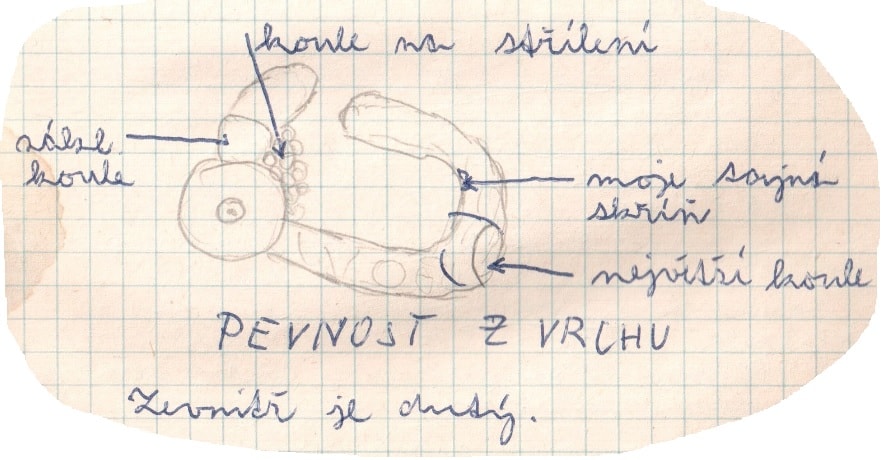 koule na střílení
koule
moje tajná
skříň
nejvítší koule
PEVNOST Z VRCHU
Zevnitř je dutý.